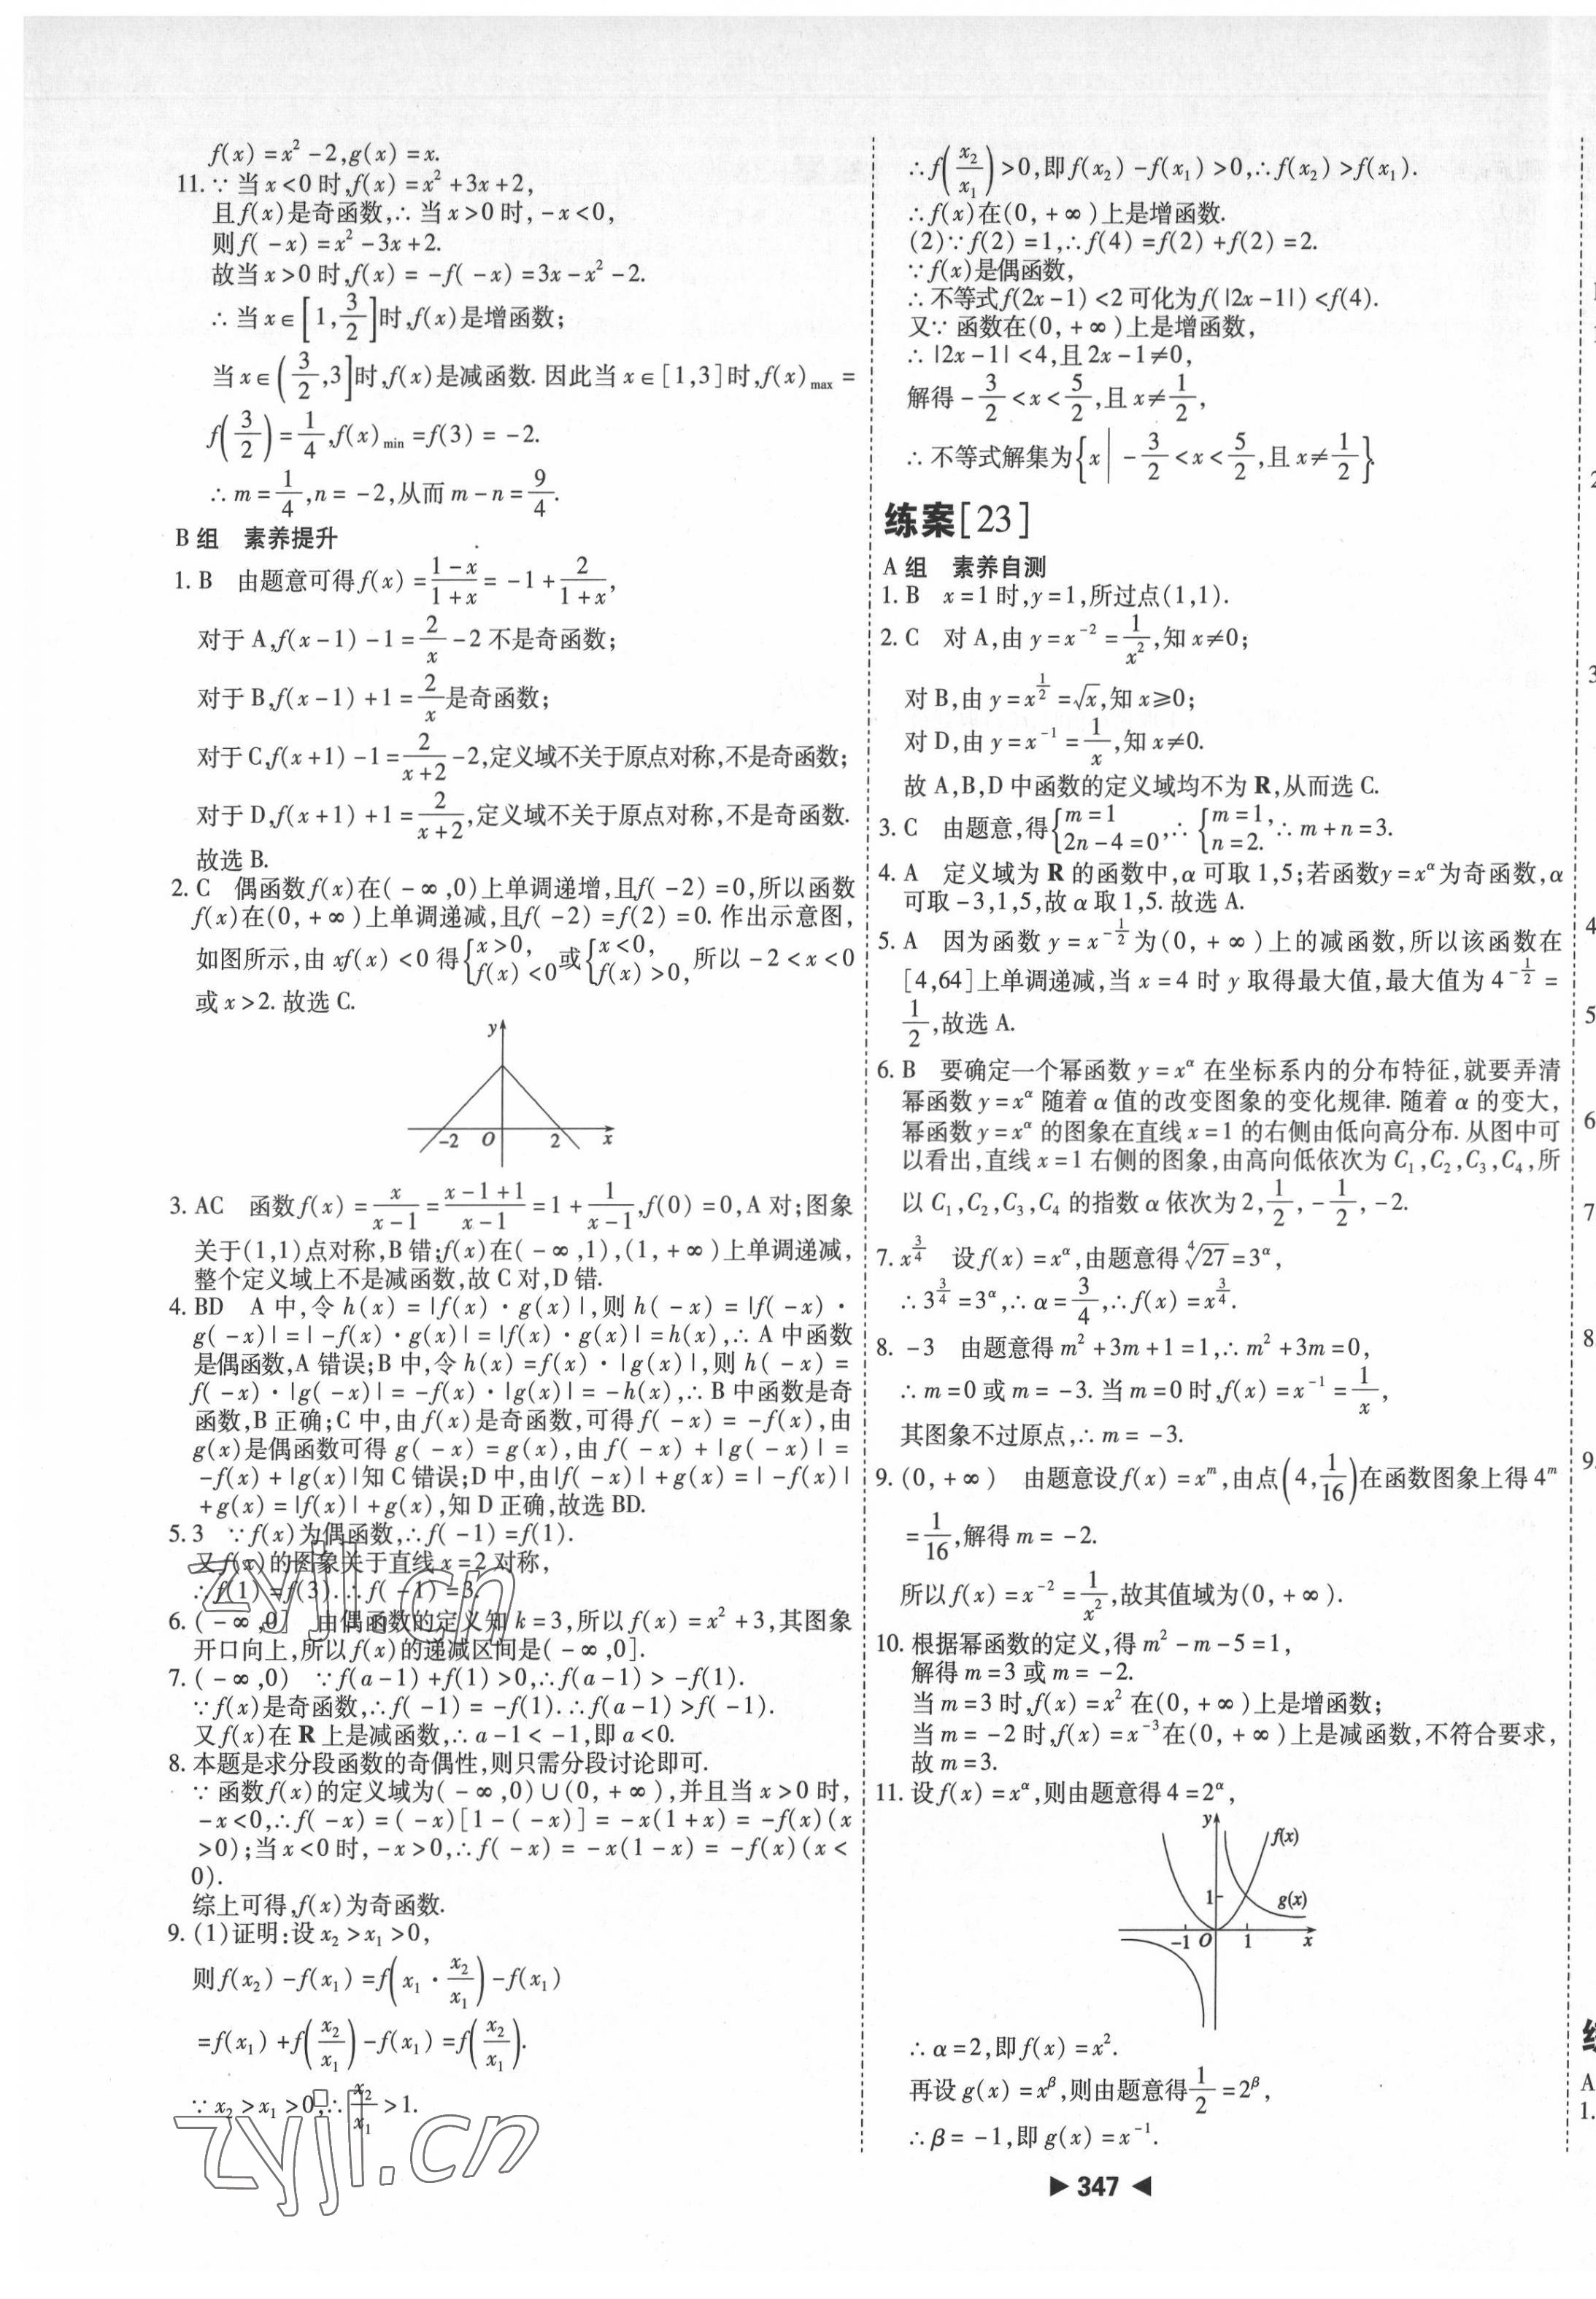 f(x)=x²-2,g(x)=x.
11.∵当x<0时,f(x)=x²+3x+2,
且f(x)是奇函数,∴当x>0时,-x<0,
则f(-x)=x²-3x+2.
故当x>0时,f(x)=-f(-x)=3x-x²-2.
∴当x∈[1,3/2]时,f(x)是增函数;
当x∈(3/2,3]时,f(x)是减函数.因此当x∈[1,3]时,f(x)max=
f(3/2)=1/4,f(x)min=f(3)=-2.
∴m=1/4,n=-2,从而m-n=9/4.
B组 素养提升
1.B 由题意可得f(x)=(1-x)/(1+x)=-1+2/(1+x),
对于A,f(x-1)-1=2/x-2不是奇函数;
对于B,f(x-1)+1=2/x是奇函数;
对于C,f(x+1)-1=2/(x+2)-2,定义域不关于原点对称,不是奇函数;
对于D,f(x+1)+1=2/(x+2),定义域不关于原点对称,不是奇函数.
故选B.
2.C 偶函数f(x)在(-∞,0)上单调递增,且f(-2)=0,所以函数
f(x)在(0,+∞)上单调递减,且f(-2)=f(2)=0.作出示意图,
如图所示,由xf(x)<0得{x>0,f(x)<0或{x<0,f(x)>0,所以-2<x<0
或x>2.故选C.
y
-2 O 2 x
3.AC 函数f(x)=x/(x-1)=(x-1+1)/(x-1)=1+1/(x-1),f(0)=0,A对;图象
关于(1,1)点对称,B错;f(x)在(-∞,1),(1,+∞)上单调递减,
整个定义域上不是减函数,故C对,D错.
4.BD A中,令h(x)=|f(x)·g(x)|,则h(-x)=|f(-x)·
g(-x)|=|-f(x)·g(x)|=|f(x)·g(x)|=h(x),∴A中函数
是偶函数,A错误;B中,令h(x)=f(x)·|g(x)|,则h(-x)=
f(-x)·|g(-x)|=-f(x)·|g(x)|=-h(x),∴B中函数是奇
函数,B正确;C中,由f(x)是奇函数,可得f(-x)=-f(x),由
g(x)是偶函数可得g(-x)=g(x),由f(-x)+|g(-x)|=
-f(x)+|g(x)|知C错误;D中,由|f(-x)|+g(x)=|-f(x)|
+g(x)=|f(x)|+g(x),知D正确,故选BD.
5.3 ∵f(x)为偶函数,∴f(-1)=f(1).
又f(x)的图象关于直线x=2对称,
∴f(1)=f(3).∴f(-1)=3.
6.(-∞,0] 由偶函数的定义知k=3,所以f(x)=x²+3,其图象
开口向上,所以f(x)的递减区间是(-∞,0].
7.(-∞,0) ∵f(a-1)+f(1)>0,∴f(a-1)>-f(1).
∵f(x)是奇函数,∴f(-1)=-f(1).∴f(a-1)>f(-1).
又f(x)在R上是减函数,∴a-1<-1,即a<0.
8.本题是求分段函数的奇偶性,则只需分段讨论即可.
∵函数f(x)的定义域为(-∞,0)∪(0,+∞),并且当x>0时,
-x<0,∴f(-x)=(-x)[1-(-x)]=-x(1+x)=-f(x)(x
>0);当x<0时,-x>0,∴f(-x)=-x(1-x)=-f(x)(x<
0).
综上可得,f(x)为奇函数.
9.(1)证明:设x₂>x₁>0,
则f(x₂)-f(x₁)=f(x₁·x₂/x₁)-f(x₁)
=f(x₁)+f(x₂/x₁)-f(x₁)=f(x₂/x₁).
∵x₂>x₁>0,∴x₂/x₁>1.
zyjl.cn
zyjl.cn
∴f(x₂/x₁)>0,即f(x₂)-f(x₁)>0,∴f(x₂)>f(x₁).
∴f(x)在(0,+∞)上是增函数.
(2)∵f(2)=1,∴f(4)=f(2)+f(2)=2.
∵f(x)是偶函数,
∴不等式f(2x-1)<2可化为f(|2x-1|)<f(4).
又∵函数在(0,+∞)上是增函数,
∴|2x-1|<4,且2x-1≠0,
解得-3/2<x<5/2,且x≠1/2,
∴不等式解集为{x|-3/2<x<5/2,且x≠1/2}
练案[23]
A组 素养自测
1.B x=1时,y=1,所过点(1,1).
2.C 对A,由y=x⁻²=1/x²,知x≠0;
对B,由y=x^(1/2)=√x,知x≥0;
对D,由y=x⁻¹=1/x,知x≠0.
故A,B,D中函数的定义域均不为R,从而选C.
3.C 由题意,得{m=1 2n-4=0,∴{m=1, n=2.∴m+n=3.
4.A 定义域为R的函数中,α可取1,5;若函数y=x^α为奇函数,α
可取-3,1,5,故α取1,5.故选A.
5.A 因为函数y=x^(-1/2)为(0,+∞)上的减函数,所以该函数在
[4,64]上单调递减,当x=4时y取得最大值,最大值为4^(-1/2)=
1/2,故选A.
6.B 要确定一个幂函数y=x^α在坐标系内的分布特征,就要弄清
幂函数y=x^α随着α值的改变图象的变化规律.随着α的变大,
幂函数y=x^α的图象在直线x=1的右侧由低向高分布.从图中可
以看出,直线x=1右侧的图象,由高向低依次为C₁,C₂,C₃,C₄,所
以C₁,C₂,C₃,C₄的指数α依次为2,1/2,-1/2,-2.
7.x^(3/4) 设f(x)=x^α,由题意得⁴√27=3^α,
∴3^(3/4)=3^α,∴α=3/4,∴f(x)=x^(3/4).
8.-3 由题意得m²+3m+1=1,∴m²+3m=0,
∴m=0或m=-3.当m=0时,f(x)=x⁻¹=1/x,
其图象不过原点,∴m=-3.
9.(0,+∞) 由题意设f(x)=x^m,由点(4,1/16)在函数图象上得4^m
=1/16,解得m=-2.
所以f(x)=x⁻²=1/x²,故其值域为(0,+∞).
10.根据幂函数的定义,得m²-m-5=1,
解得m=3或m=-2.
当m=3时,f(x)=x²在(0,+∞)上是增函数;
当m=-2时,f(x)=x⁻³在(0,+∞)上是减函数,不符合要求,
故m=3.
11.设f(x)=x^α,则由题意得4=2^α,
y
f(x)
1 g(x)
-1 O 1 x
∴α=2,即f(x)=x².
再设g(x)=x^β,则由题意得1/2=2^β,
∴β=-1,即g(x)=x⁻¹.
▶347◀